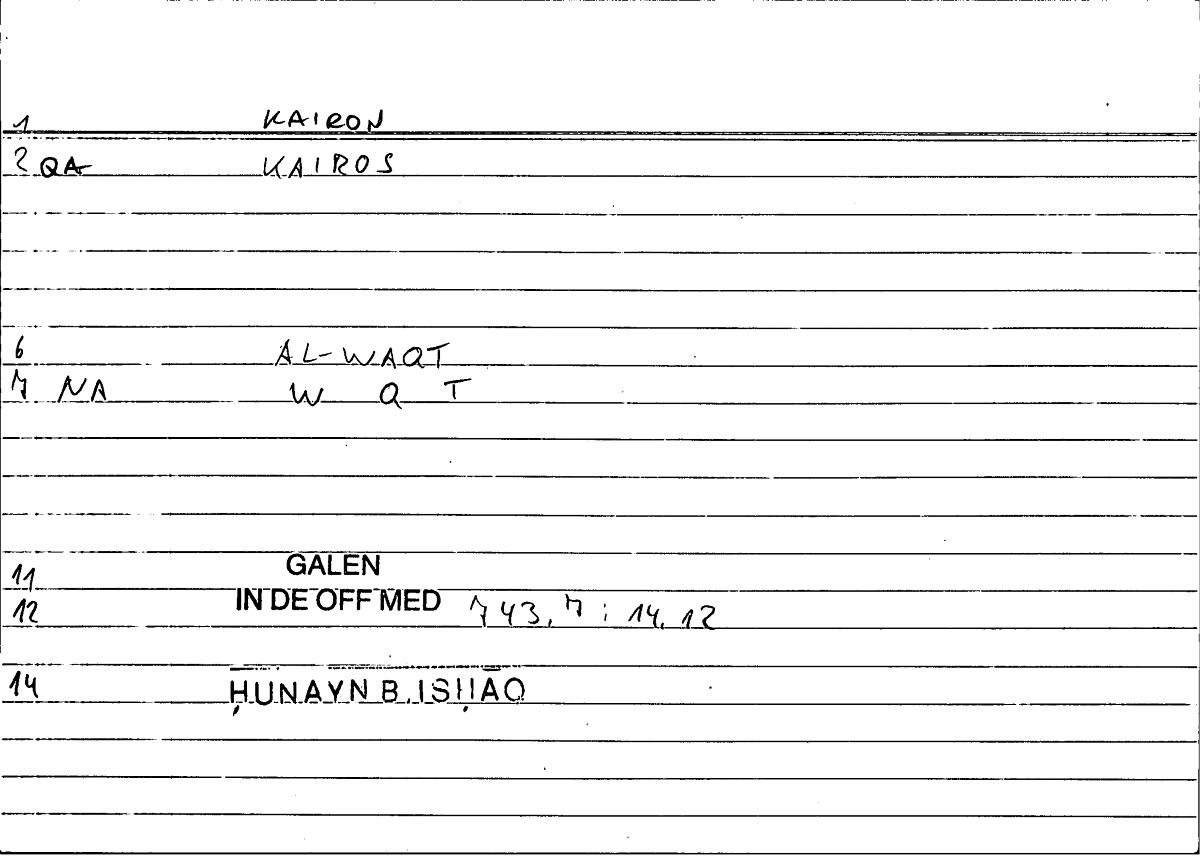 1 KAIRON
2 QA KAIROS
6 AL-WAQT
7 NA W Q T
11 GALEN
12 IN DE OFF MED 743,7 ; 14,12
14 ḤUNAYN B. ISḤĀQ